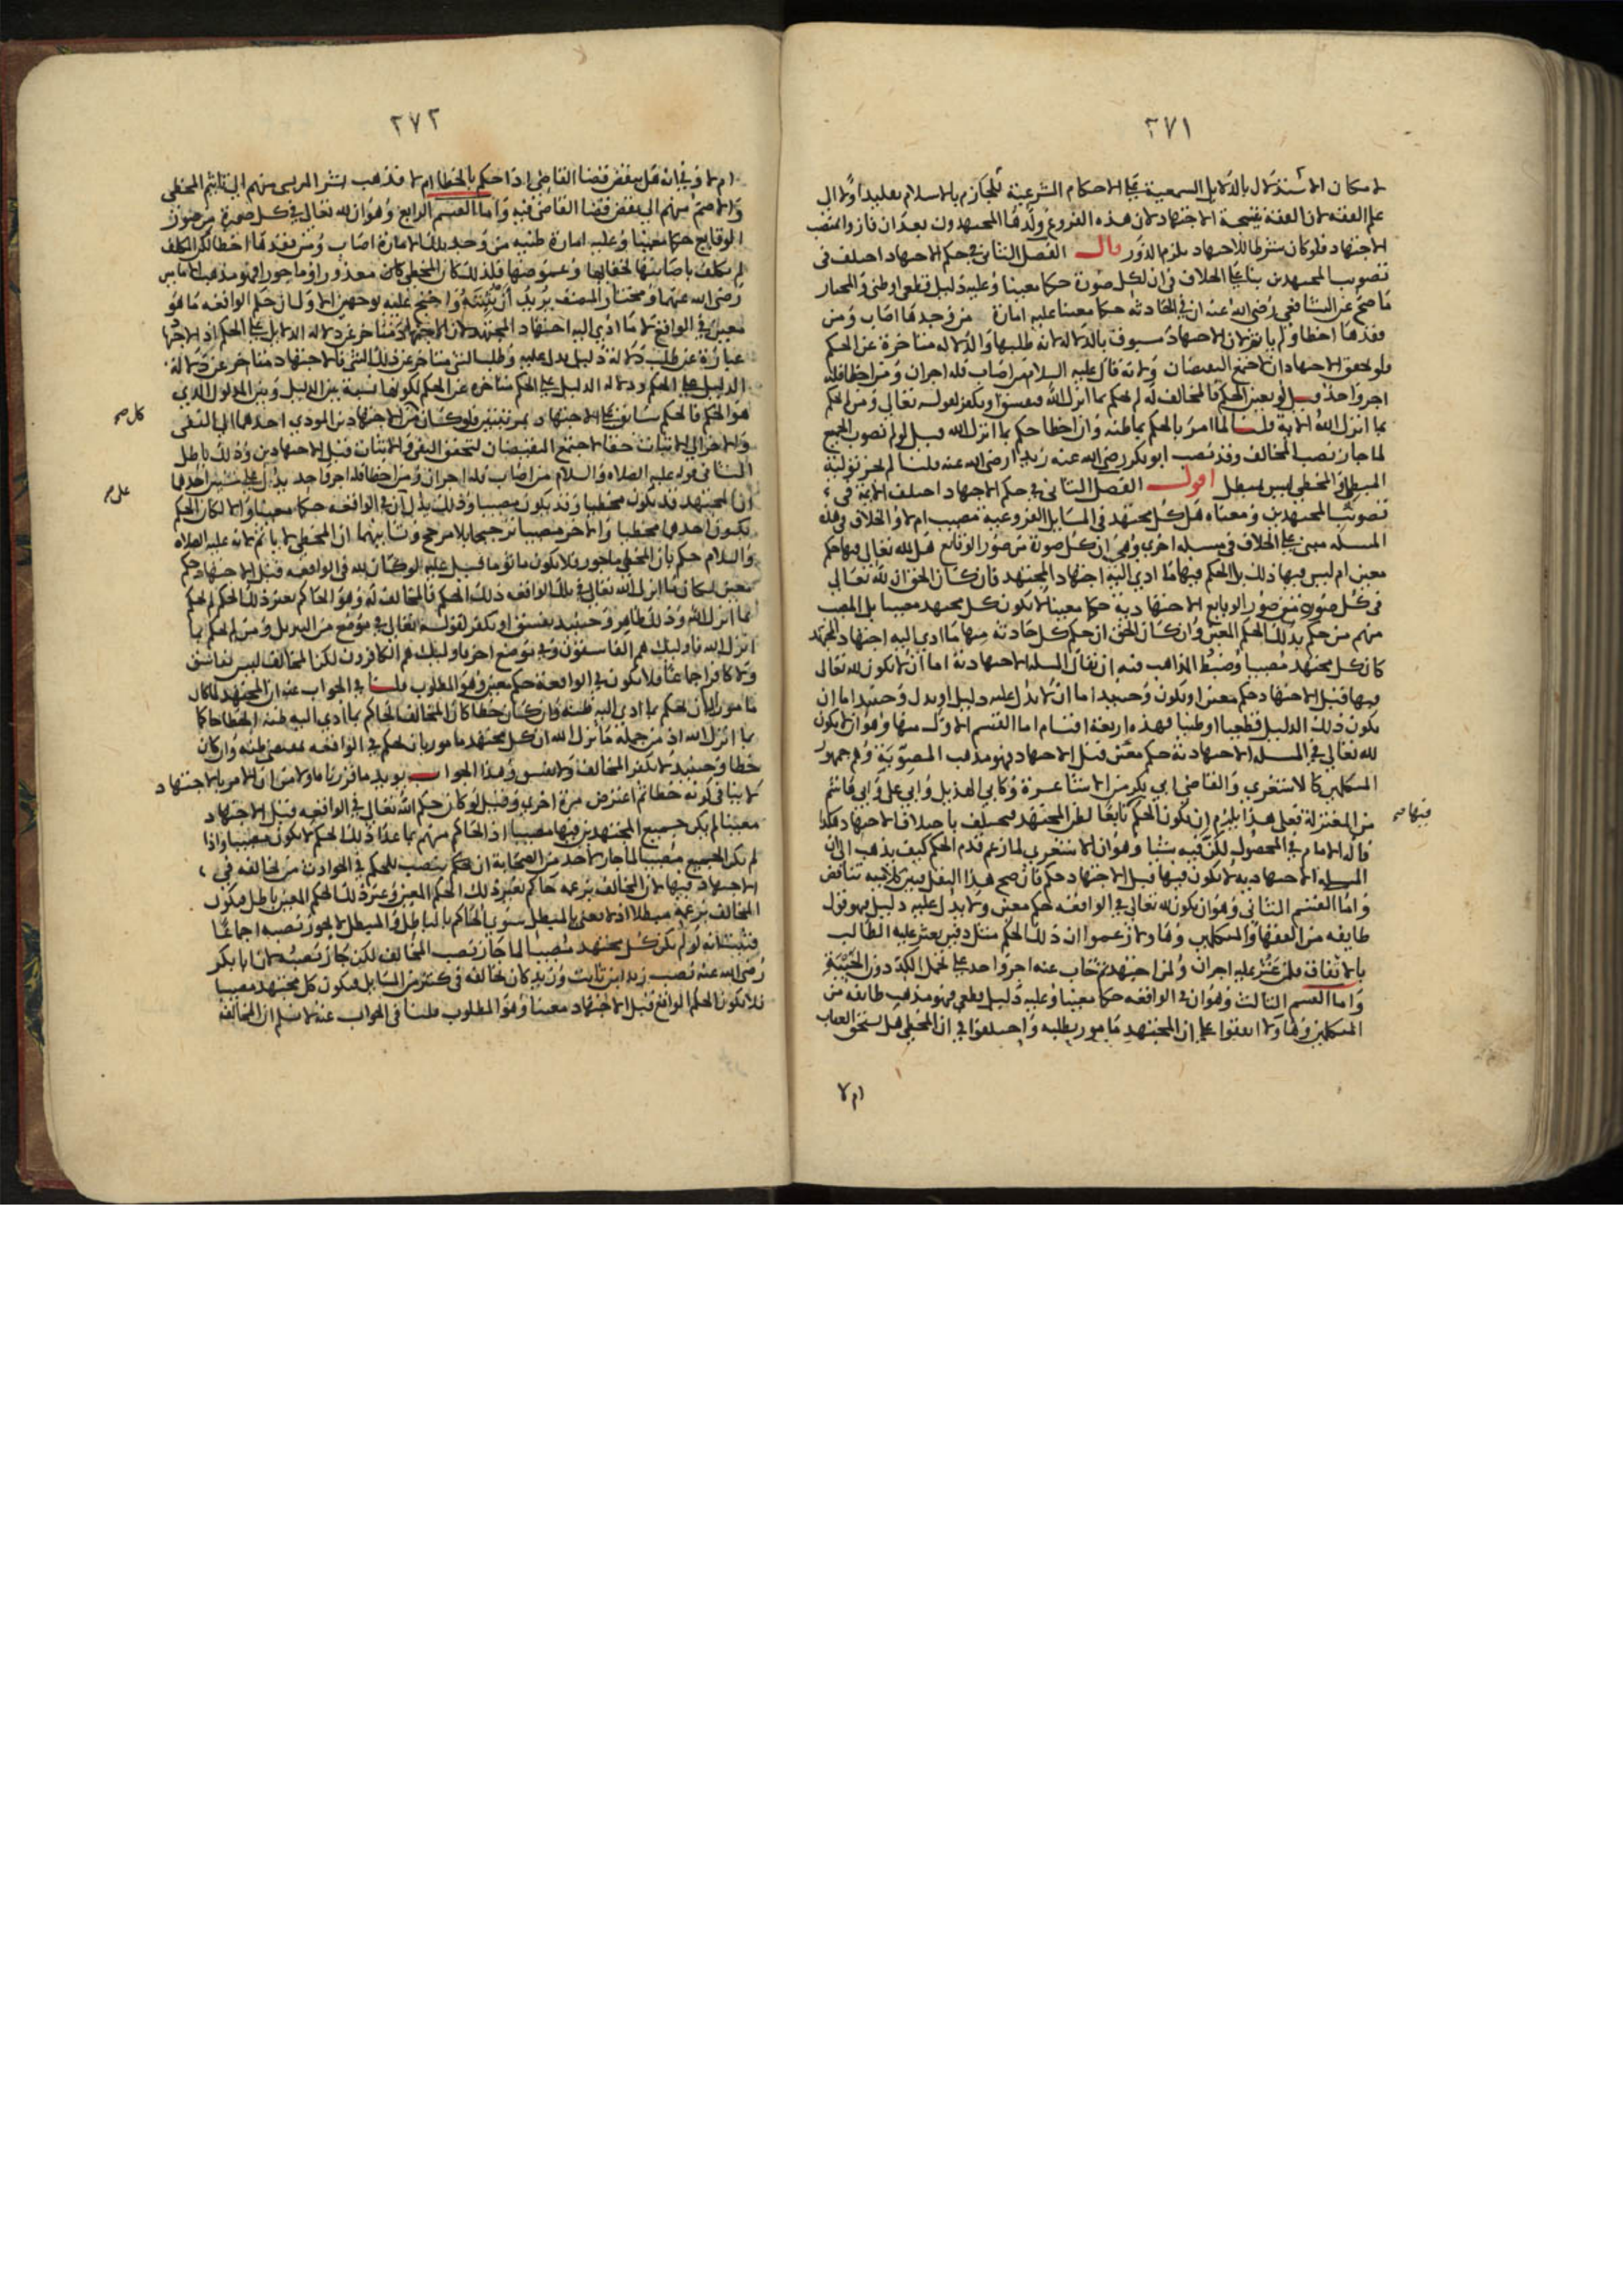 ٢٧١
لامكان الاستدلال بالدلايل السمعية على الاحكام الشرعية للجازم بالاسلام تقليدا ولا الى
علم الفقه لان الفقه نتيجة الاجتهاد لان هذه الفروع ولدها المجتهدون بعد ان فازوا بمنصب
الاجتهاد فلو كان شرطا للاجتهاد يلزم الدور قال الفصل الثاني في حكم الاجتهاد اختلف في
تصويب المجتهدين بناء على الخلاف في ان لكل صورة حكما معينا وعليه دليل قطعي او ظني والمختار
ما صح عن الشافعي رضي الله عنه ان في الحادثة حكما معينا عليه امارة من وجدها اصاب ومن
فقدها اخطا ولم ياثم لان الاجتهاد مسبوق بالدلالة لانه طلبها والدلالة متاخرة عن الحكم
فلو تحقق الاجتهادان اجتمع النقيضان ولانه قال عليه السلام من اصاب فله اجران ومن اخطا فله
اجر واحد قيل لو تعين الحكم فالمخالف له لم يحكم بما انزل الله فيفسق او يكفر لقوله تعالى ومن لم يحكم
بما انزل الله الاية قلنا لما امر بالحكم بما ظنه وان اخطا حكم بما انزل الله قيل لو لم نصوب الجميع
لما جاز نصب المخالف وقد نصب ابو بكر رضي الله عنه زيدا رضي الله عنه قلنا لم يجز تولية
المبطل والمخطي ليس بمبطل اقول الفصل الثاني في حكم الاجتهاد اختلف الامة في
تصويب المجتهدين ومعناه هل كل مجتهد في المسايل الفروعية مصيب ام لا والخلاف في هذه
المسلة مبني على الخلاف في مسلة اخرى وهي ان كل صورة من صور الوقايع هل لله تعالى فيها حكم
معين ام ليس فيها ذلك بل الحكم فيها ما ادي اليه اجتهاد المجتهد فان كان الحق ان لله تعالى
في كل صورة من صور الوقايع الاجتهادية حكما معينا لا يكون كل مجتهد مصيبا بل المصيب
منهم من حكم بذلك الحكم المعين وان كان الحق ان حكم كل حادثة منها ما ادى اليه اجتهاد المجتهد
كان كل مجتهد مصيبا وضبط المذاهب فيه ان نقال المسلة الاجتهادية اما ان لا يكون لله تعالى
فيها قبل الاجتهاد حكم معين او يكون وحينئذ اما ان لا يدل عليه دليل او يدل وحينئذ اما ان
يكون ذلك الدليل قطعيا او ظنيا فهذه اربعة اقسام اما القسم الاول منها وهو ان لا يكون
لله تعالى في المسلة الاجتهادية حكم معين قبل الاجتهاد فهو مذهب المصوبية وهم جمهور
المتكلمين كالاشعري والقاضي ابي بكر من الاشاعرة وكابي الهذيل وابي علي وابي هاشم
من المعتزلة فعلى هذا يلزم ان يكون الحكم تابعا لظن المجتهد فيختلف باختلاف الاجتهاد هكذا
فيها صح
قاله الامام في المحصول لكن فيه شيا وهو ان الاشعري لما زعم قدم الحكم كيف يذهب الى ان
المسلة الاجتهادية لا يكون فيها قبل الاجتهاد حكم فان صح هذا النقل فبين كلاميه تناقض
واما القسم الثاني وهو ان يكون لله تعالى في الواقعة حكم معين ولا يدل عليه دليل فهو قول
طايفه من الفقها والمتكلمين وهاولا زعموا ان ذلك الحكم مثل دفين يعثر عليه الطالب
بالاتفاق فلمن عثر عليه اجران ولمن اجتهد ثم خاب عنه اجر واحد على تحمل الكد دون الخيبة
واما القسم الثالث وهو ان في الواقعه حكما معينا وعليه دليل قطعي فهو مذهب طايفه من
المتكلمين وهاولا اتفقوا على ان المجتهد مامور بطلبه واختلفوا في ان المخطي هل يستحق العقاب
ام لا
٢٧٢
ام لا وفي انه هل ينقض قضا القاضي اذا حكم بالخطا ام لا فذهب بشر المريسي منهم الى تاثيم المخطي
والاصم منهم الى نقض قضا القاضي فيه واما القسم الرابع وهو ان لله تعالى في كل صورة من صور
الوقايع حكما معينا وعليه امارة ظنيه من وجد تلك الامارة اصاب ومن فقدها اخطا لكن المكلف
لم يكلف باصابتها لخفايها وغموضها فلذلك كان المخطي كان معذورا وماجورا فهو مذهب
رضي الله عنهما ومختار المصنف يريد ان يثبته واحتج عليه بوجهين الاول ان حكم الواقعه ما هو
معين في الواقع لا ما ادي اليه اجتهاد المجتهد لان الاجتهاد متاخر عن دلالة الدلايل على الحكم اذ الاجتهاد
عبارة عن طلب دلالة دليل يدل عليه وطلب الشي متاخر عن ذلك الشي فالاجتهاد متاخر عن دلالة
الدليل على الحكم ودلالة الدليل على الحكم متاخرة عن الحكم لكونها نسبة بين الدليل وبين المدلول الذي
هو الحكم فالحكم سابق على الاجتهاد بمرتبتين فلو كان من الاجتهادين المودي احدهما الى النفي
كل صح
والاخر الى الاثبات حقا لاجتمع النقيضان لتحقق النفي والاثبات قبل الاجتهادين وذلك باطل
الثاني قوله عليه الصلاه والسلام من اصاب فله اجران ومن اخطا فله اجر واحد يدل على شيئين احدهما
على صح
ان المجتهد قد يكون مخطيا وقد يكون مصيبا وذلك يدل ان في الواقعه حكما معينا والا لكان الحكم
بكون احدهما مخطيا والاخر مصيبا ترجيحا بلا مرجح وثانيهما ان المخطي لا ياثم لانه عليه الصلاة
والسلام حكم بان المخطي ماجور فلا يكون ماثوما قيل عليه لو كان لله في الواقعه قبل الاجتهاد حكم
معين لكان ما انزل الله تعالى في تلك الواقعه ذلك الحكم فالمخالف له وهو الحاكم بغير ذلك الحكم لم يحكم
بما انزل الله وذلك ظاهر وحينئذ يفسق او يكفر لقوله تعالى في موضع من التنزيل ومن لم يحكم بما
انزل الله فاوليك هم الفاسقون وفي موضع اخر فاوليك هم الكافرون لكن المخالف ليس بفاسق
ولا كافر اجماعا فلا يكون في الواقعة حكم معين وهو المطلوب قلنا في الجواب عنه ان المجتهد لما كان
مامورا بان يحكم بما ادي اليه ظنه وان كان خطا كان المخالف الحاكم بما ادي اليه ظنه الخطا حاكما
بما انزل الله اذ من جملة ما انزل الله ان كل مجتهد مامور بان يحكم في الواقعه بمقتضى ظنه وان كان
خطا وحينئذ لا يكفر المخالف ولا يفسق وهذا الجواب يويد ما قررناه اولا من ان الامر بالاجتهاد
لا ينافي كونه خطا ثم اعترض مرة اخرى وقيل لو كان حكم الله تعالى في الواقعه قبل الاجتهاد
معينا لم يكن جميع المجتهدين فيها مصيبا اذ الحاكم منهم بما عدا ذلك الحكم لا يكون مصيبا واذا
لم يكن الجميع مصيبا لما جاز لاحد من الصحابة ان ينصب للحكم في الحوادث من يخالفه في
الاجتهاد فيها لان المخالف بزعمه حاكم بغير ذلك الحكم المعين وغير ذلك الحكم المعين باطل فيكون
المخالف بزعمه مبطلا اذ لا يعنى بالمبطل سوى الحاكم بالباطل والمبطل لا يجوز نصبه اجماعا
فثبت انه لو لم يكن كل مجتهد مصيبا لما جاز نصب المخالف لكن جاز نصبه لان ابا بكر
رضي الله عنه نصب زيد ابن ثابت وزيد كان يخالفه في كثير من المسايل فيكون كل مجتهد مصيبا
فلا يكون الحكم الواقع قبل الاجتهاد معينا وهو المطلوب قلنا في الجواب عنه لا نسلم ان المخالفة